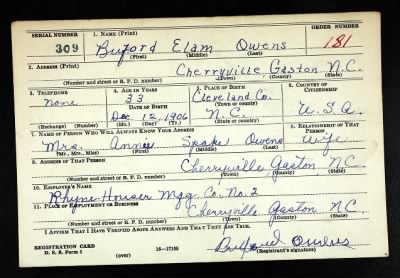 SERIAL NUMBER 1. NAME (Print) ORDER NUMBER
309 Buford Elam Owens 181
(First) (Middle) (Last)
2. ADDRESS (Print)
Cherryville, Gaston N.C.
(Number and street or R. F. D. number) (Town) (County) (State)
3. TELEPHONE 4. AGE IN YEARS 5. PLACE OF BIRTH 6. COUNTRY OF CITIZENSHIP
None 33 Cleveland Co.
DATE OF BIRTH (Town or county)
Dec. 12, 1906 N.C. U.S.A.
(Exchange) (Number) (Mo.) (Day) (Yr.) (State or country)
7. NAME OF PERSON WHO WILL ALWAYS KNOW YOUR ADDRESS 8. RELATIONSHIP OF THAT PERSON
Mrs. Annie Spake Owens Wife
(Mr., Mrs., Miss) (First) (Middle) (Last)
9. ADDRESS OF THAT PERSON
Cherryville Gaston N.C.
(Number and street or R. F. D. number) (Town) (County) (State)
10. EMPLOYER'S NAME
Rhyne-Houser Mfg. Co. No. 2
11. PLACE OF EMPLOYMENT OR BUSINESS
Cherryville Gaston N.C.
(Number and street or R. F. D. number) (Town) (County) (State)
I AFFIRM THAT I HAVE VERIFIED ABOVE ANSWERS AND THAT THEY ARE TRUE.
REGISTRATION CARD 16—17105 Buford Owens
D. S. S. Form 1 (over) (Registrant's signature)